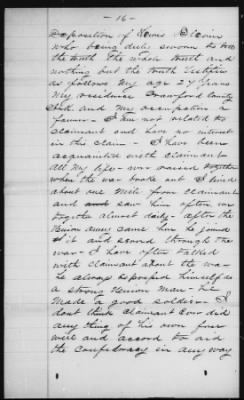 - 16 -
Deposition of Lewis Blevins
who being duly sworn to tell
the truth the whole truth and
nothing but the truth testifies
as follows My age 27 years
My residence Crawford County
Ark. and my occupation is
farmer - I am not related to
claimant and have no interest
in this claim - I have been
acquainted with claimant
all my life - we raised together
when the war broke out I lived
about one mile from claimant
and saw him often we
together almost daily - after the
Union army came here he joined
it and served through the
war - I have often talked
with claimant about the war
he always expressed himself as
a strong Union man - he
made a good soldier - I
dont think claimant ever did
any thing of his own free
will and accord to aid
the confederacy in any way